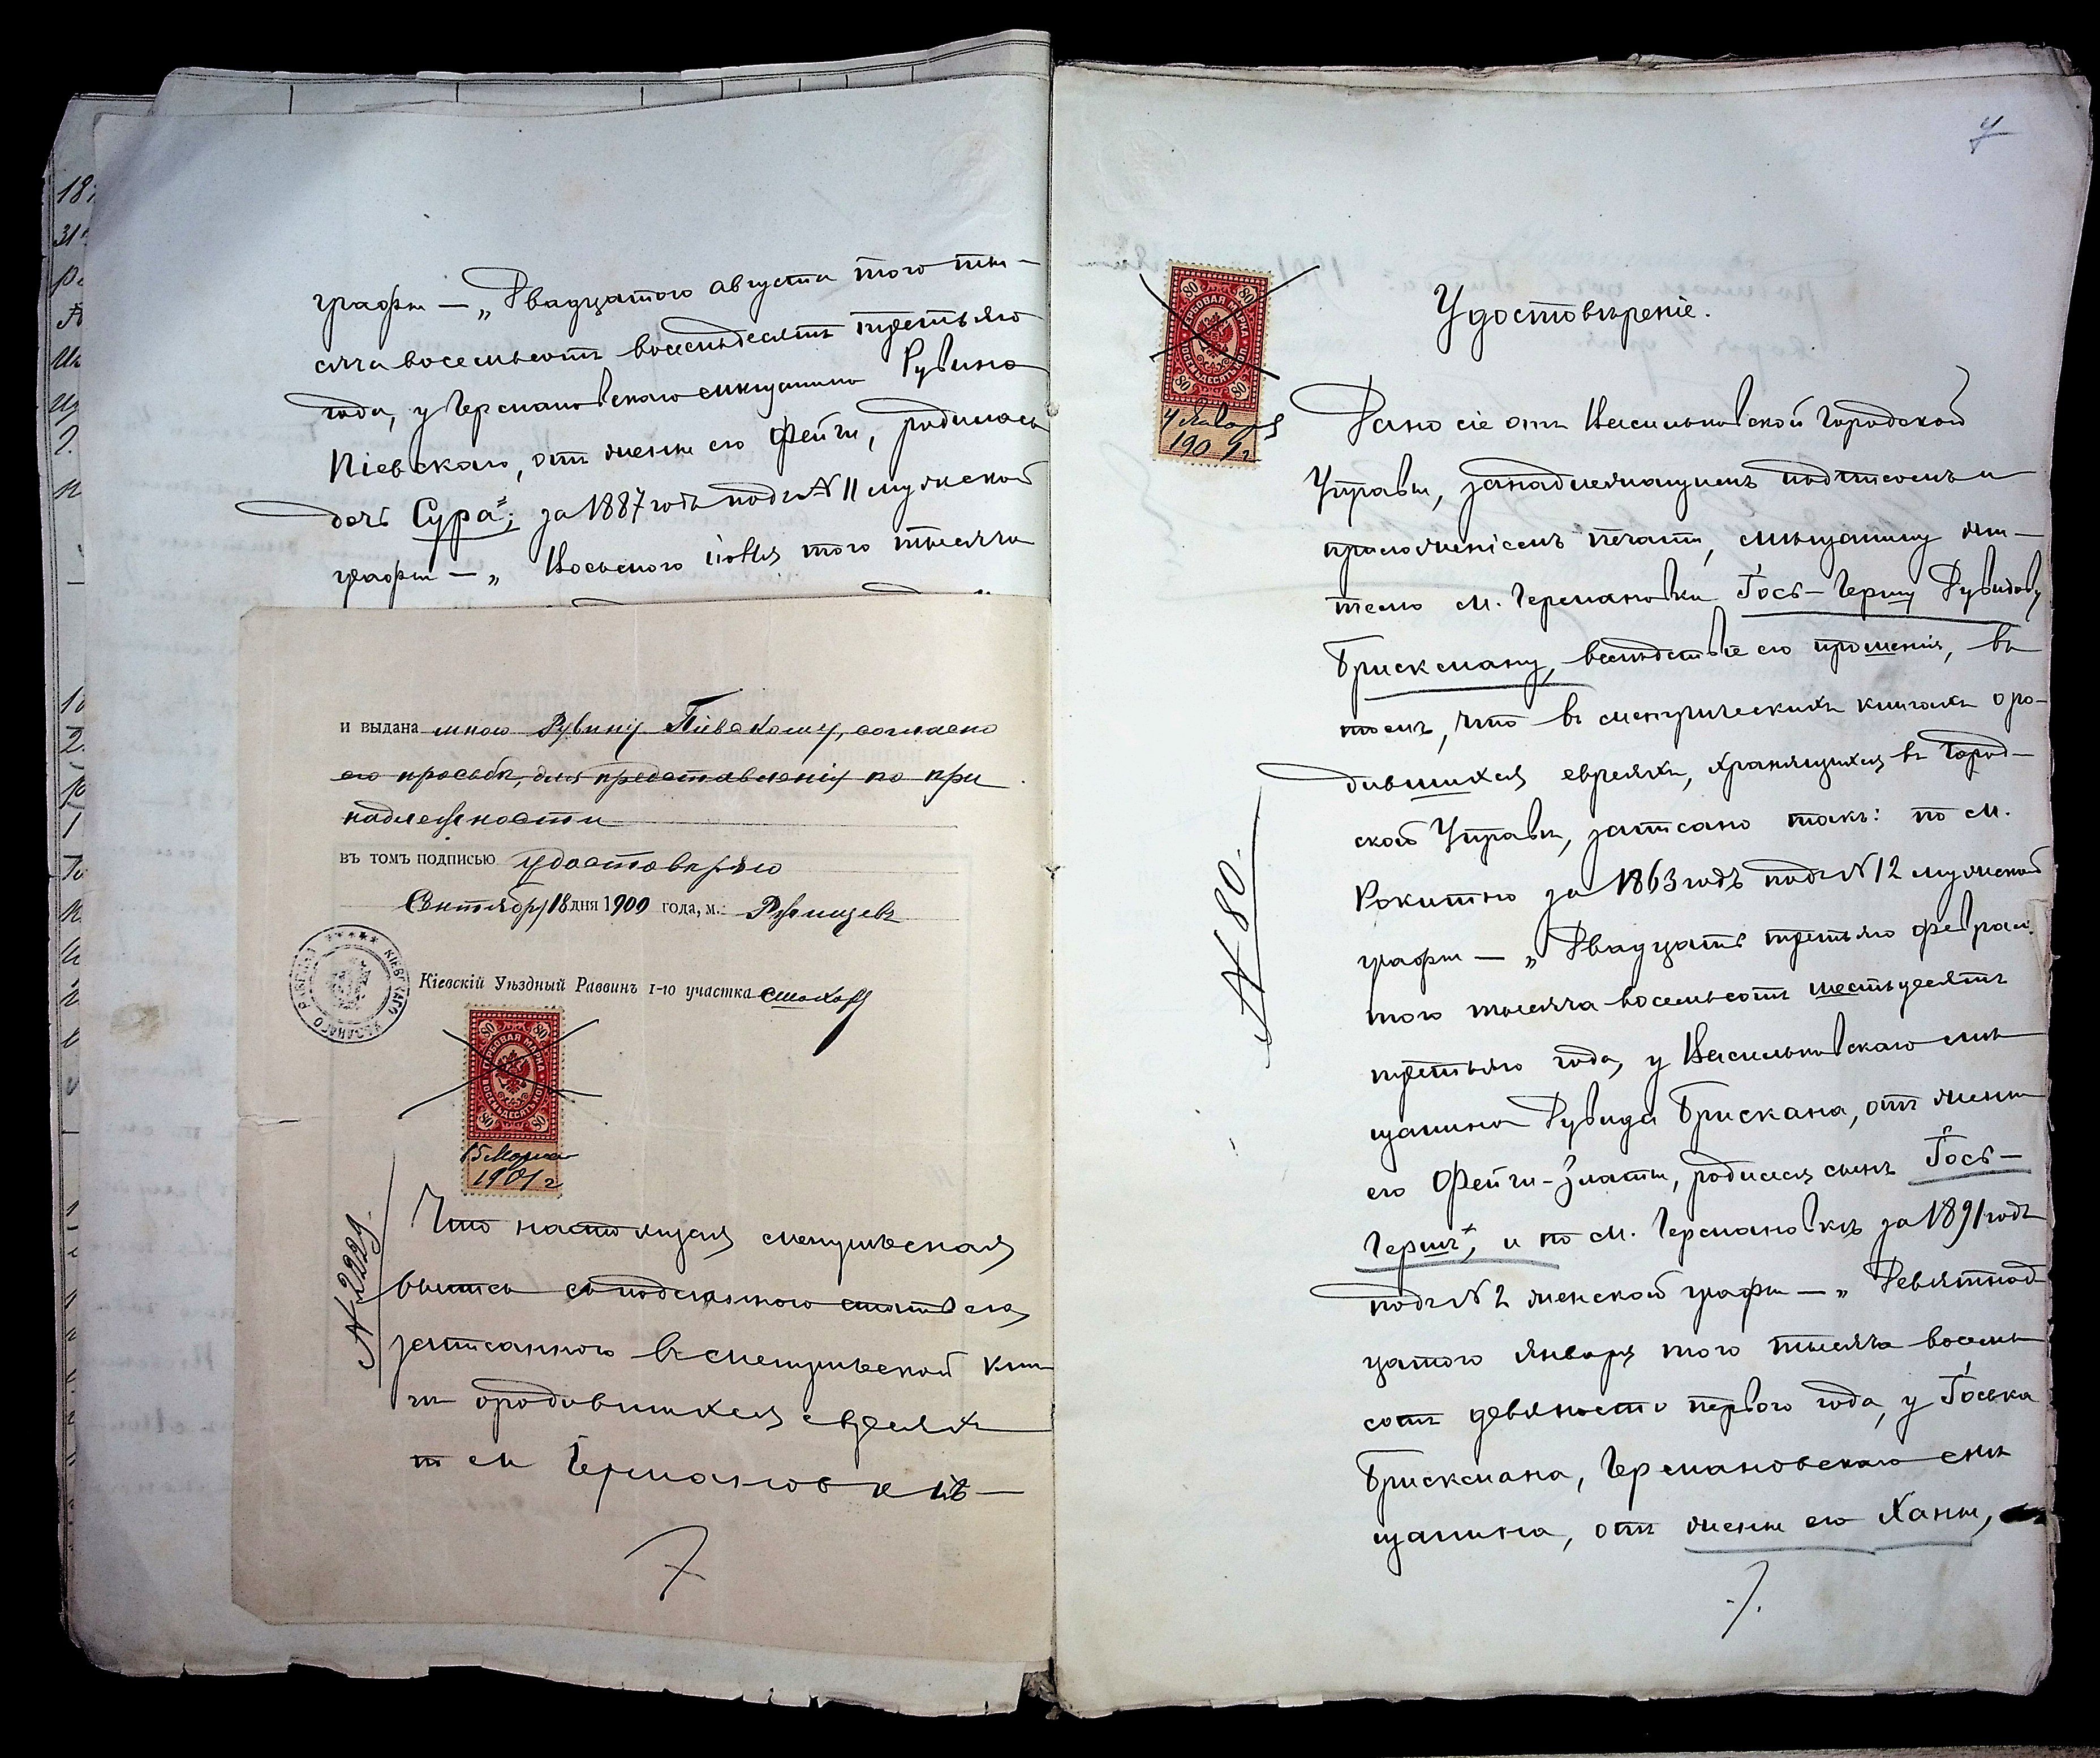 графѣ — „Двадцатого августа того ты-
сяча восемьсотъ восемьдесятъ третьяго
года, у Германовскаго мѣщанина Рувина
Кіевскаго, отъ жены его Фейги, родилась
дочь Сура“; за 1887 годъ подъ № 11 мужской
графѣ — „ Восьмого іюня того тысяча
и выдана мною Рувину Кіевскому, согласно
его просьбѣ, для представленія по при
надлежности
въ томъ подписью удостовѣряю
Сентября 18 дня 1900 года, м. Ржищевъ
КІЕВСКАГО УѢЗДНАГО РАВВИНА
Кіевскій Уѣздный Раввинъ 1-го участка
80 80
ГЕРБОВАЯ МАРКА
ВОСЕМЬДЕСЯТЪ КОП.
80 80
15 Марта
1901 г
№ 2229.
Что настоящая метрическая
выпись съ подлинного
записанного въ метрической кни
гѣ о родившихся евреяхъ
по м Германовкѣ —
4
80 80
ГЕРБОВАЯ МАРКА
ВОСЕМЬДЕСЯТЪ КОП.
80 80
4 Января
1901 г
Удостовѣреніе.
Дано сіе отъ Васильковской Городской
Управы, за надлежащимъ подписомъ и
приложеніемъ печати, мѣщанину жи-
телю м. Германовки Іось-Гершу Дувидову
Брискману, вслѣдствіе его прошенія, въ
томъ, что въ метрическихъ книгахъ о ро-
дившихся евреяхъ, хранящихся въ Город-
ской Управѣ, записано такъ: по м.
Рокитно за 1863 годъ подъ № 12 мужской
графѣ — „Двадцать третьяго феврал.
того тысяча восемьсотъ шестьдесятъ
третьяго года, у Васильковскаго мѣ
щанина Дувида Брискана, отъ жены
его Фейги-Златы, родился сынъ Іось-
Гершъ“, и по м. Германовкѣ за 1891 годъ
подъ № 2 женской графѣ — „Девятнад
цатого января того тысяча восемь
сотъ девяносто перваго года, у Іоська
Брискмана, Германовскаго мѣ
щанина, отъ жены его Ханы,
№ 80.